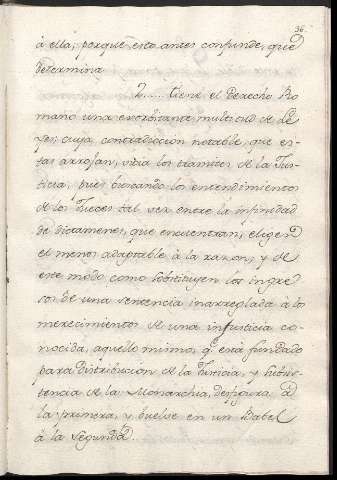 36.
à ella; porque esto antes confunde, que
determina
2.... tiene el Derecho Ro
mano una exorbitante multitud de Le
yes; cuya contradiccion notable, que es-
tas arrojan, vicia los tramites de la Jus-
ticia, pues buscando los entendimientos
de los Jueces tal vez entre la infinidad
de dictamenes, que encuentran, eligen
el menos adaptable à la razon, y de
este modo como substituyen los ingre
sos de una sentencia inarreglada à los
merecimientos de una injusticia co-
nocida, aquello mismo, q.e està fundado
para distribucion de la Justicia, y subsis-
tencia de la Monarchia, desfigura à
la primera, y buelve en un Babel
à la segunda.